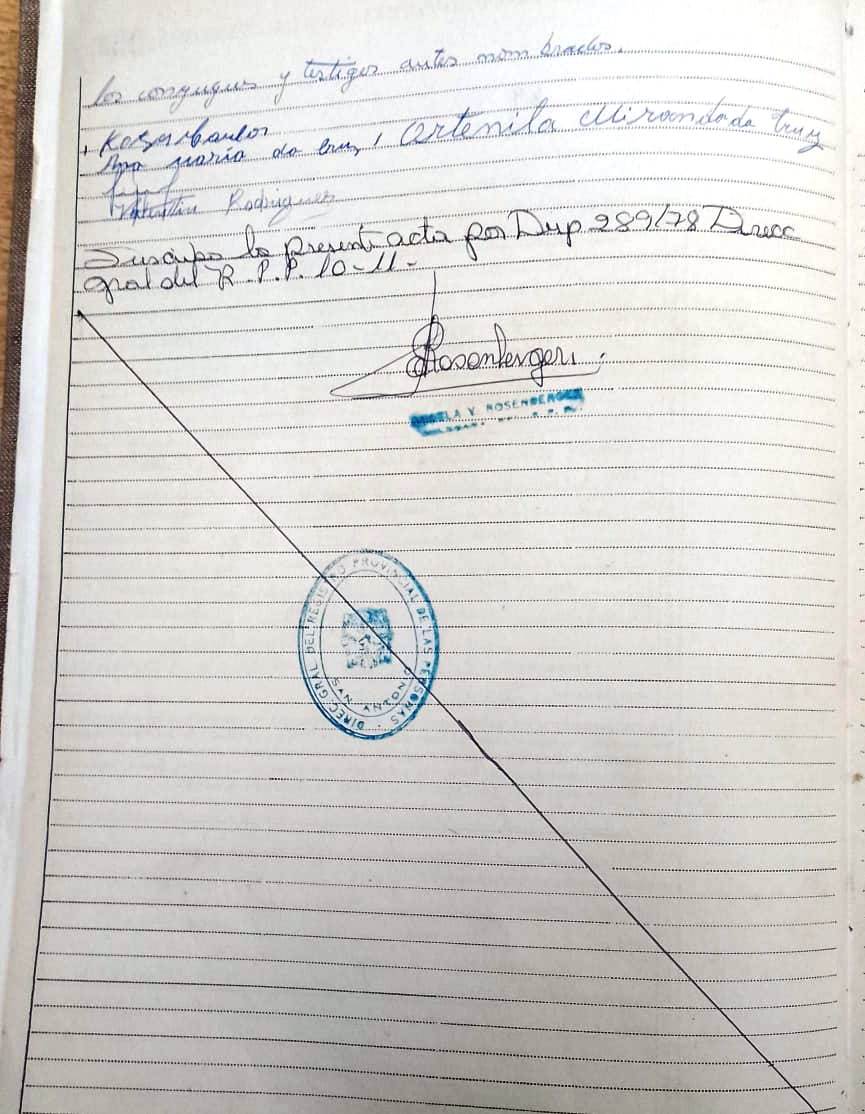 los conyugues y testigos antes nombrados.
Artenila Miranda da Cruz
Ana maria da Cruz
Valentin Rodriguez
Suscribo la present acta por Disp 289/78 Direcc
gral del R.P.P. 10-11-
Rosenberger
Y. ROSENBERGER
DIREC. GRAL. DEL REGISTRO PROVINCIAL DE LAS PERSONAS
SAN ANTONIO